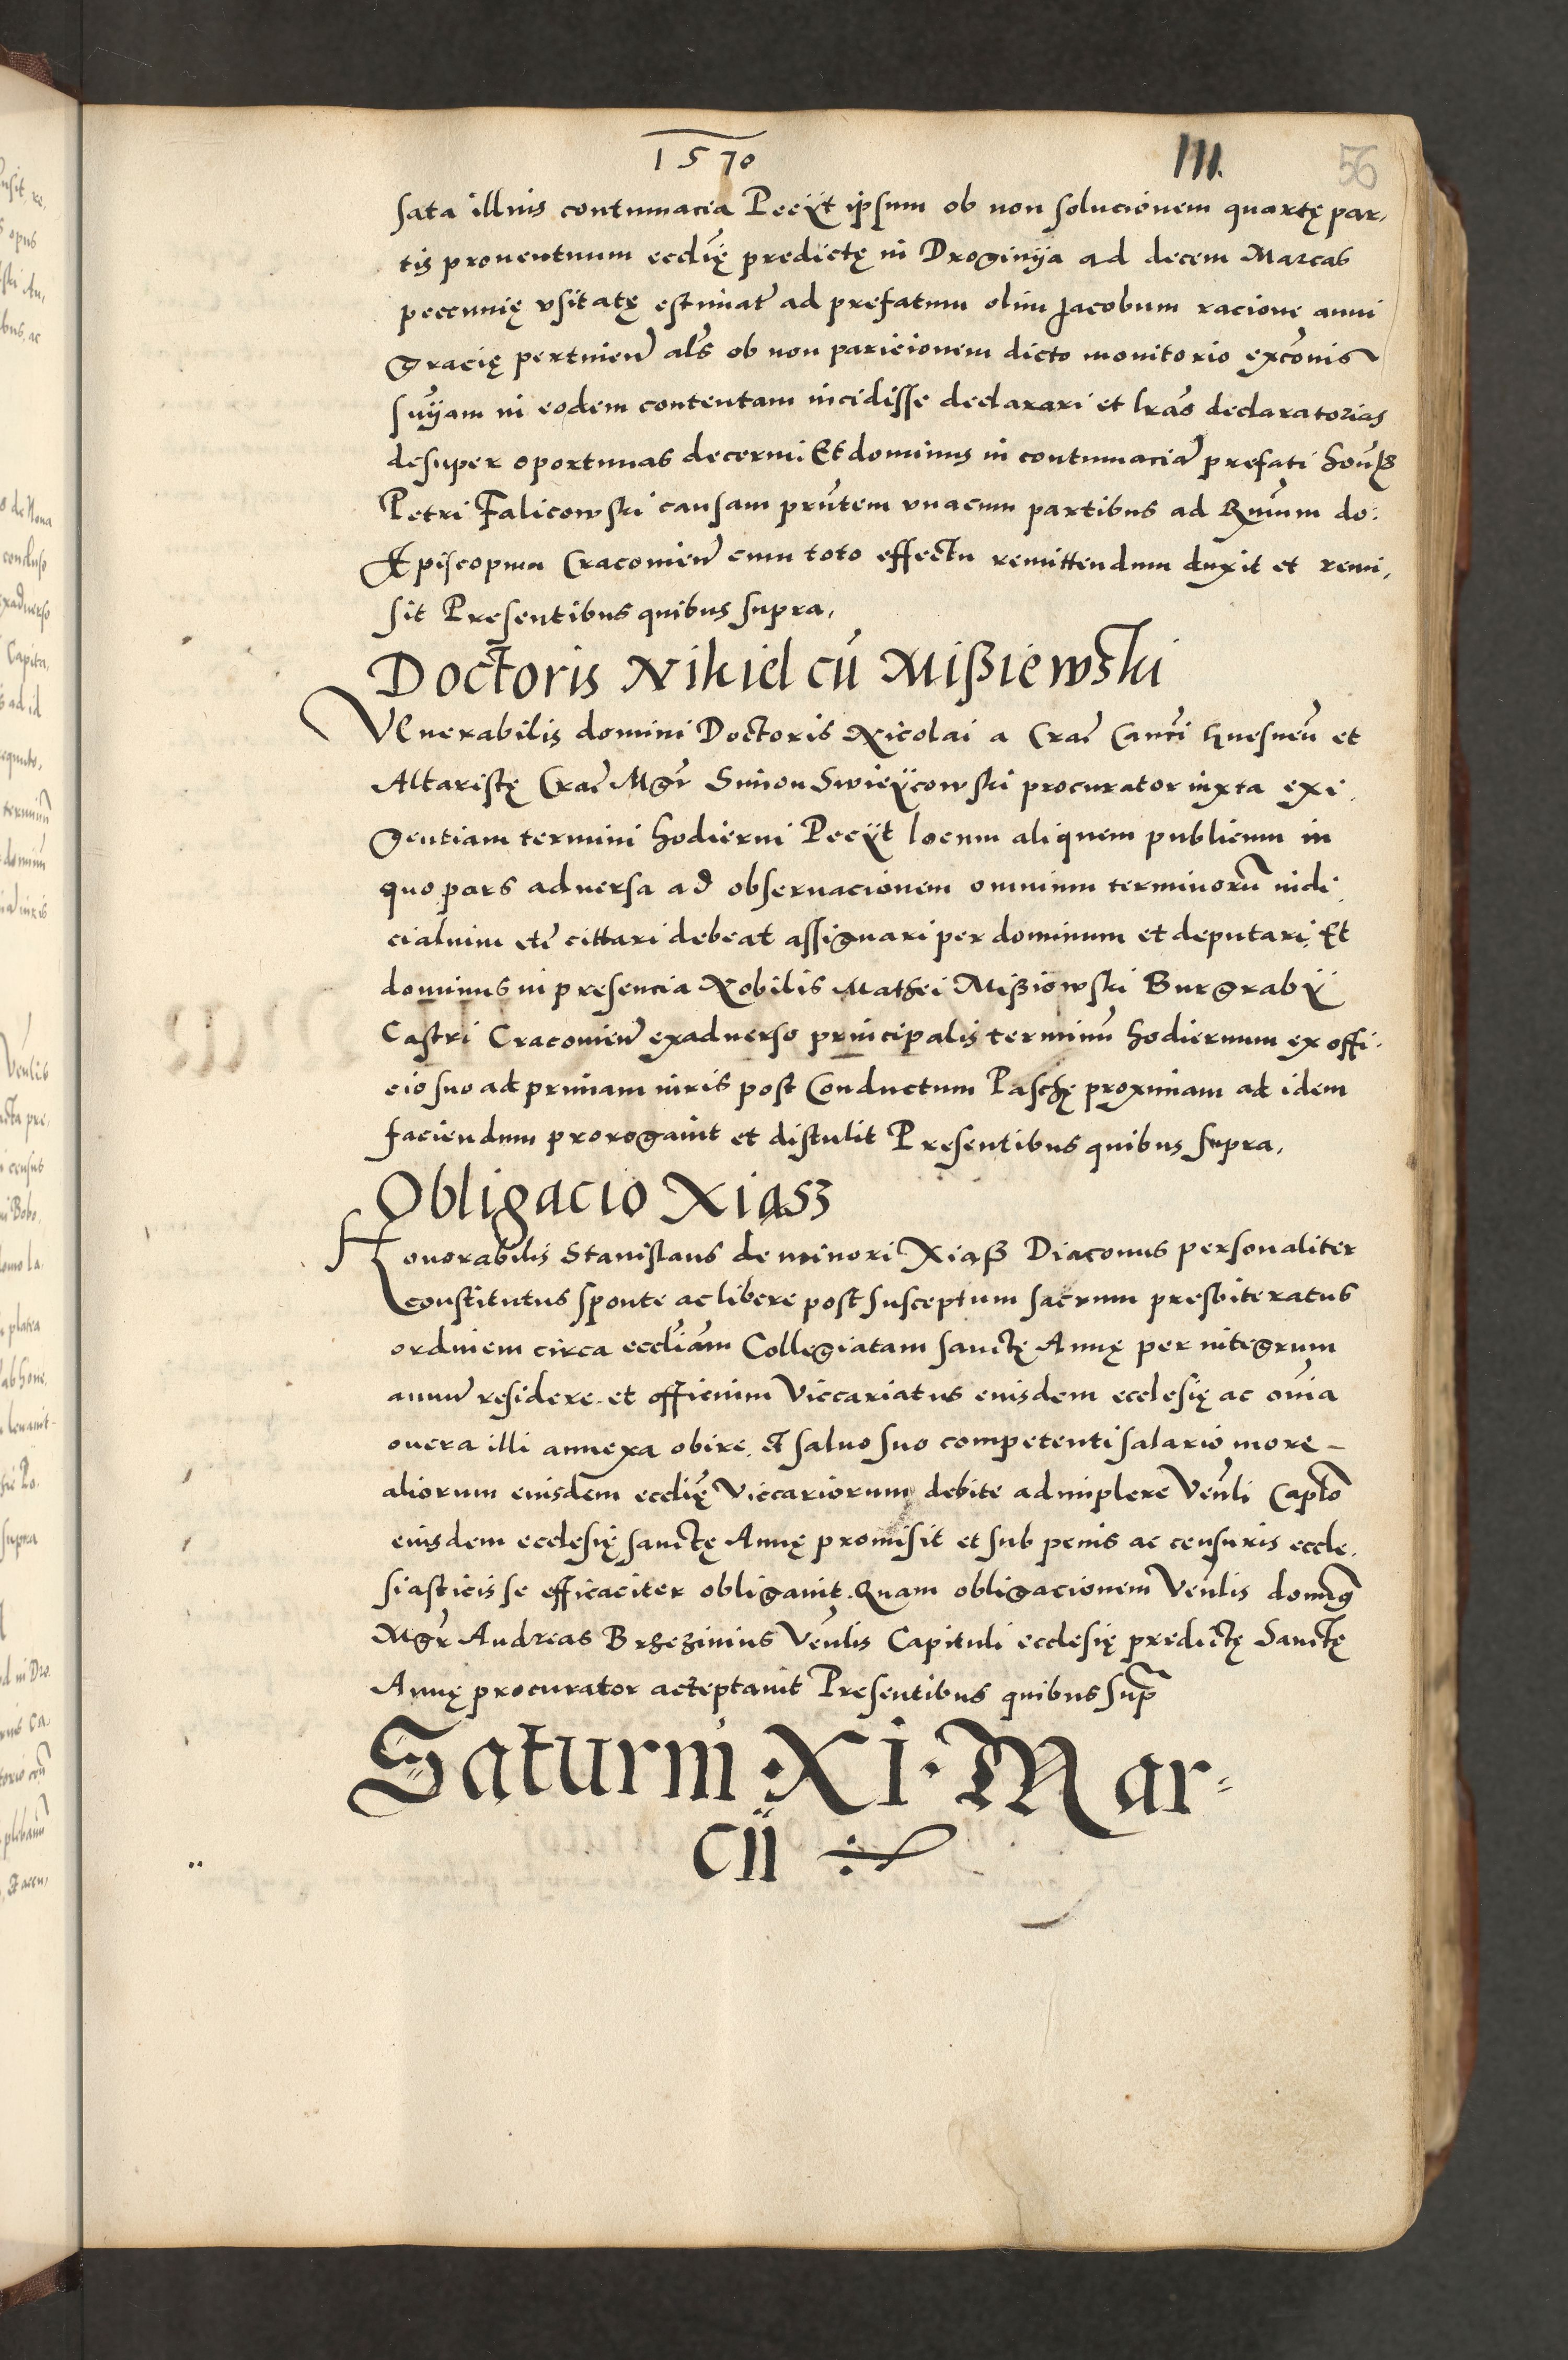 1570 III. 56
sata illius contumacia Peeÿt ipsum ob non solucionem quartę par,
tis prouentuum ecclię predictę in Droginÿa ad decem Marcas
peccunię vsitatę estimat ad prefatum olim Jacobum racione anni
Gracię pertinen als ob non paricionem dicto monitorio excōnis
snÿam in eodem contentam incidisse declarari et lras declaratorias
desuper oportunas decerni Et dominus in contumaciā prefati hon
Petri Falicowski causam pntem vnacum partibus ad Rmum do:
Episcopum Cracouien cum toto effectu remittendum duxit et remi,
sit Presentibus quibus supra,
Doctoris Nikiel cū Mißiewski
VEnerabilis domini Doctoris Nicolai a Cra Canci Gnesnen et
Altaristę Cra Mgr Simon Swieÿcowski procurator iuxta exi,
gentiam termini hodierni Peeÿt locum aliquem publicum in
quo pars aduersa ad obseruacionem omnium terminorū iudi,
cialium etc cittari debeat assignari per dominum et deputari, Et
dominus in presencia Nobilis Mathei Mißiowski Burgrabÿ
Castri Cracouien exaduerso principalis terminū hodiernum ex offi,
cio suo ad primam iuris post Conductum Paschę proximam ad idem
faciendum prorogauit et distulit Presentibus quibus supra,
Obligacio Xiasz
Honorabilis Stanislaus de minori Xiaß Diaconus personaliter
constitutus sponte ac libere post susceptum sacrum presbiteratus
ordinem circa eccliam Collegiatam sanctę Annę per integrum
annū residere et officium Viccariatus eiusdem ecclesię ac oīa
onera illi annexa obire et saluo suo competenti salario more
aliorum eiusdem ecclię Viccariorum debite adimplere Venli Caplo
eiusdem ecclesię sanctę Annę promisit et sub penis ac censuris eccle,
siasticis se efficaciter obligauit Quam obligacionem Venlis domīs
Mgr Andreas Brzezinius Venlis Capituli ecclesię predictę Sanctę
Annę procurator acceptauit Presentibus quibus sup
Saturni XI Mar-
cii